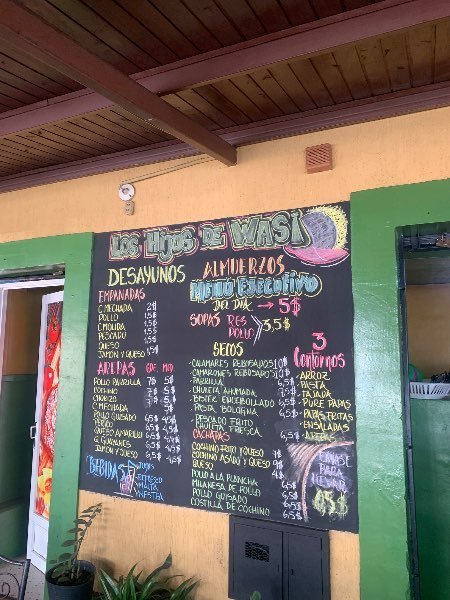 Los Hijos de WASI
DESAYUNOS
EMPANADAS
C. MECHADA 2$
POLLO 1,5$
C. MOLIDA 1,5$
PESCADO 1,5$
QUESO
JAMÓN Y QUESO 1,5$
AREPAS GDE. MED.
POLLO PARRILLA 7$ 5$
COCHINO 7$ 5$
CHORIZO
C. MECHADA
POLLO GUISADO 6,5$
PERICO
QUESO AMARILLO
Q. GUAYANES
JAMÓN Y QUESO
BEBIDAS
JUGOS
REFRESCO
MALTA
NESTEA
ALMUERZOS
MENÚ EJECUTIVO
DEL DÍA → 5$
SOPAS RES
POLLO 3,5$
SECOS
CALAMARES REBOSADOS 10$
CAMARONES REBOSADOS
PARRILLA
CHULETA AHUMADA
BISTEC ENCEBOLLADO 6,5$
PASTA BOLOGNA
PESCADO FRITO
CHULETA FRESCA 6,5$
CACHAPAS
COCHINO FRITO Y QUESO
COCHINO ASADO Y QUESO
QUESO
POLLO A LA PLANCHA
MILANESA DE POLLO
POLLO GUISADO 6,5$
COSTILLA DE COCHINO 6,5$
3
Contornos
ARROZ
PASTA
TAJADA
PURE PAPAS
PAPAS FRITAS
ENSALADAS
AREPAS
ENVASE
PARA
LLEVAR